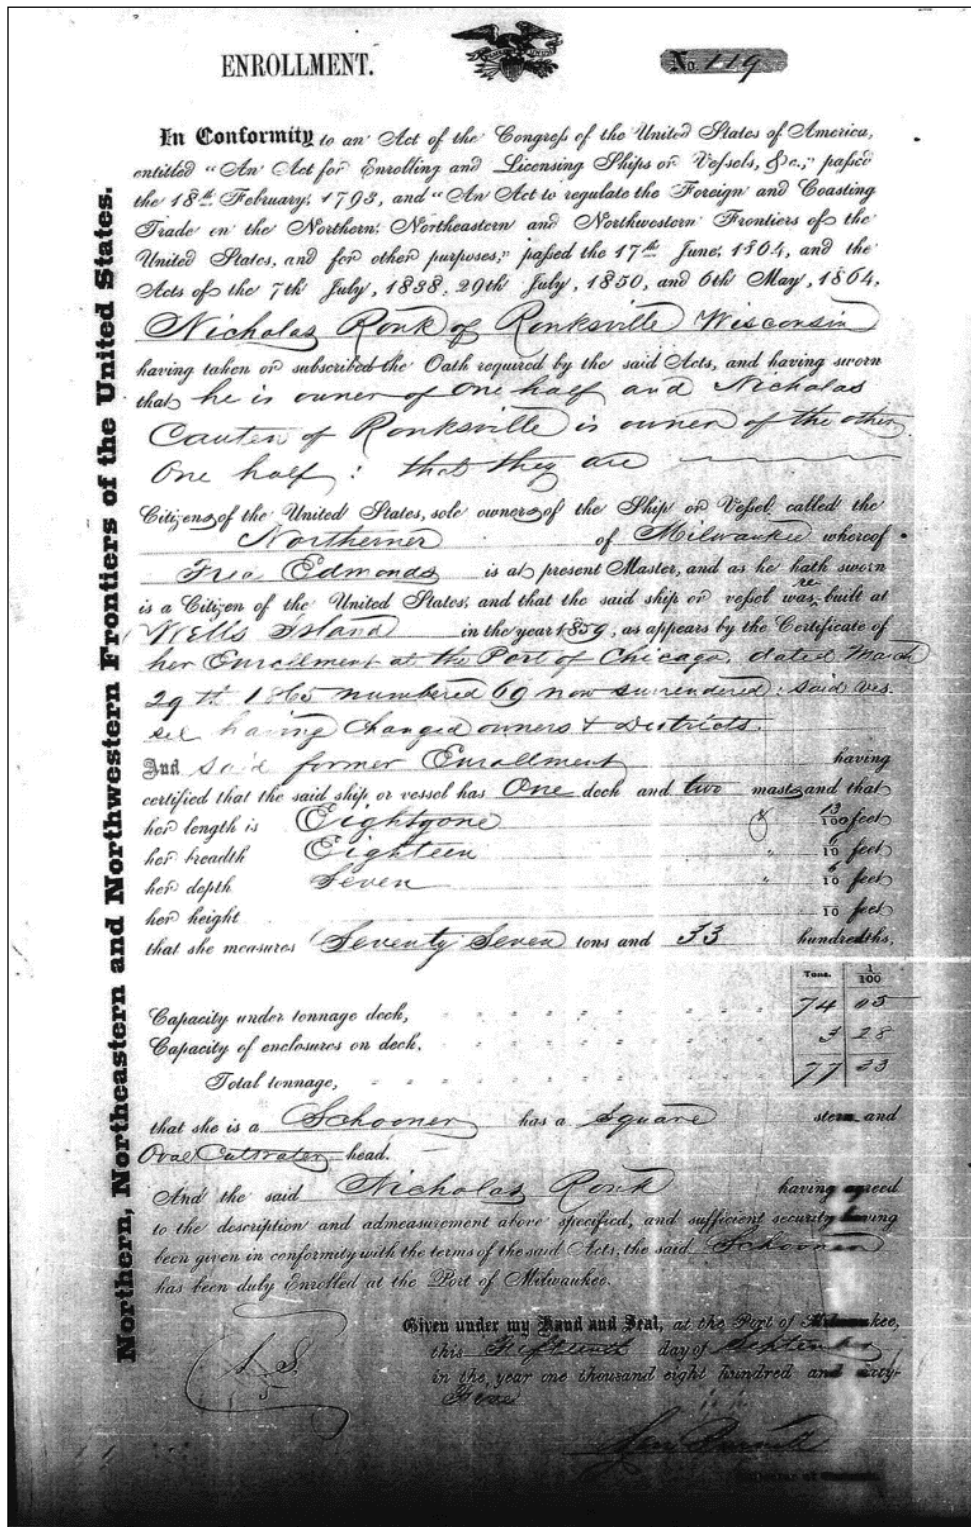 ENROLLMENT.
No. 119
Northern, Northeastern and Northwestern Frontiers of the United States.
In Conformity to an Act of the Congress of the United States of America,
entitled "An Act for Enrolling and Licensing Ships or Vessels, &c.," passed
the 18th February, 1793, and "An Act to regulate the Foreign and Coasting
Trade on the Northern, Northeastern and Northwestern Frontiers of the
United States, and for other purposes," passed the 17th June, 1864, and the
Acts of the 7th July, 1838, 29th July, 1850, and 6th May, 1864,
Nicholas Ronk of Ronksville Wisconsin
having taken or subscribed the Oath required by the said Acts, and having sworn
that he is owner of one half and Nicholas
of Ronksville is owner of the other
One half: that they are
Citizens of the United States, sole owners of the Ship or Vessel called the
Northerner of Milwaukee whereof
Edmonds is at present Master, and as he hath sworn
is a Citizen of the United States, and that the said ship or vessel was re-built at
Wells Island in the year 1859, as appears by the Certificate of
her Enrollment at the Port of Chicago, dated March
29th 1865 numbered 69 now surrendered: said Ves
sel having changed owners & Districts.
And said former Enrollment having
certified that the said ship or vessel has One deck and two masts and that
her length is Eightyone & 13/100 feet
her breadth Eighteen " 6/10 feet
her depth Seven " 6/10 feet
her height 10 feet
that she measures Seventy Seven tons and 33 hundredths,
Tons. 1/100
Capacity under tonnage deck, 74 05
Capacity of enclosures on deck, 3 28
Total tonnage, 77 33
that she is a Schooner has a square stern and
Oval Cutwater head.
And the said Nicholas Ronk having agreed
to the description and admeasurement above specified, and sufficient security having
been given in conformity with the terms of the said Acts, the said Schooner
has been duly Enrolled at the Port of Milwaukee.
Given under my Hand and Seal, at the Port of Milwaukee,
this Fifteenth day of September
in the year one thousand eight hundred and sixty-
Five
L S
Collector of Customs.